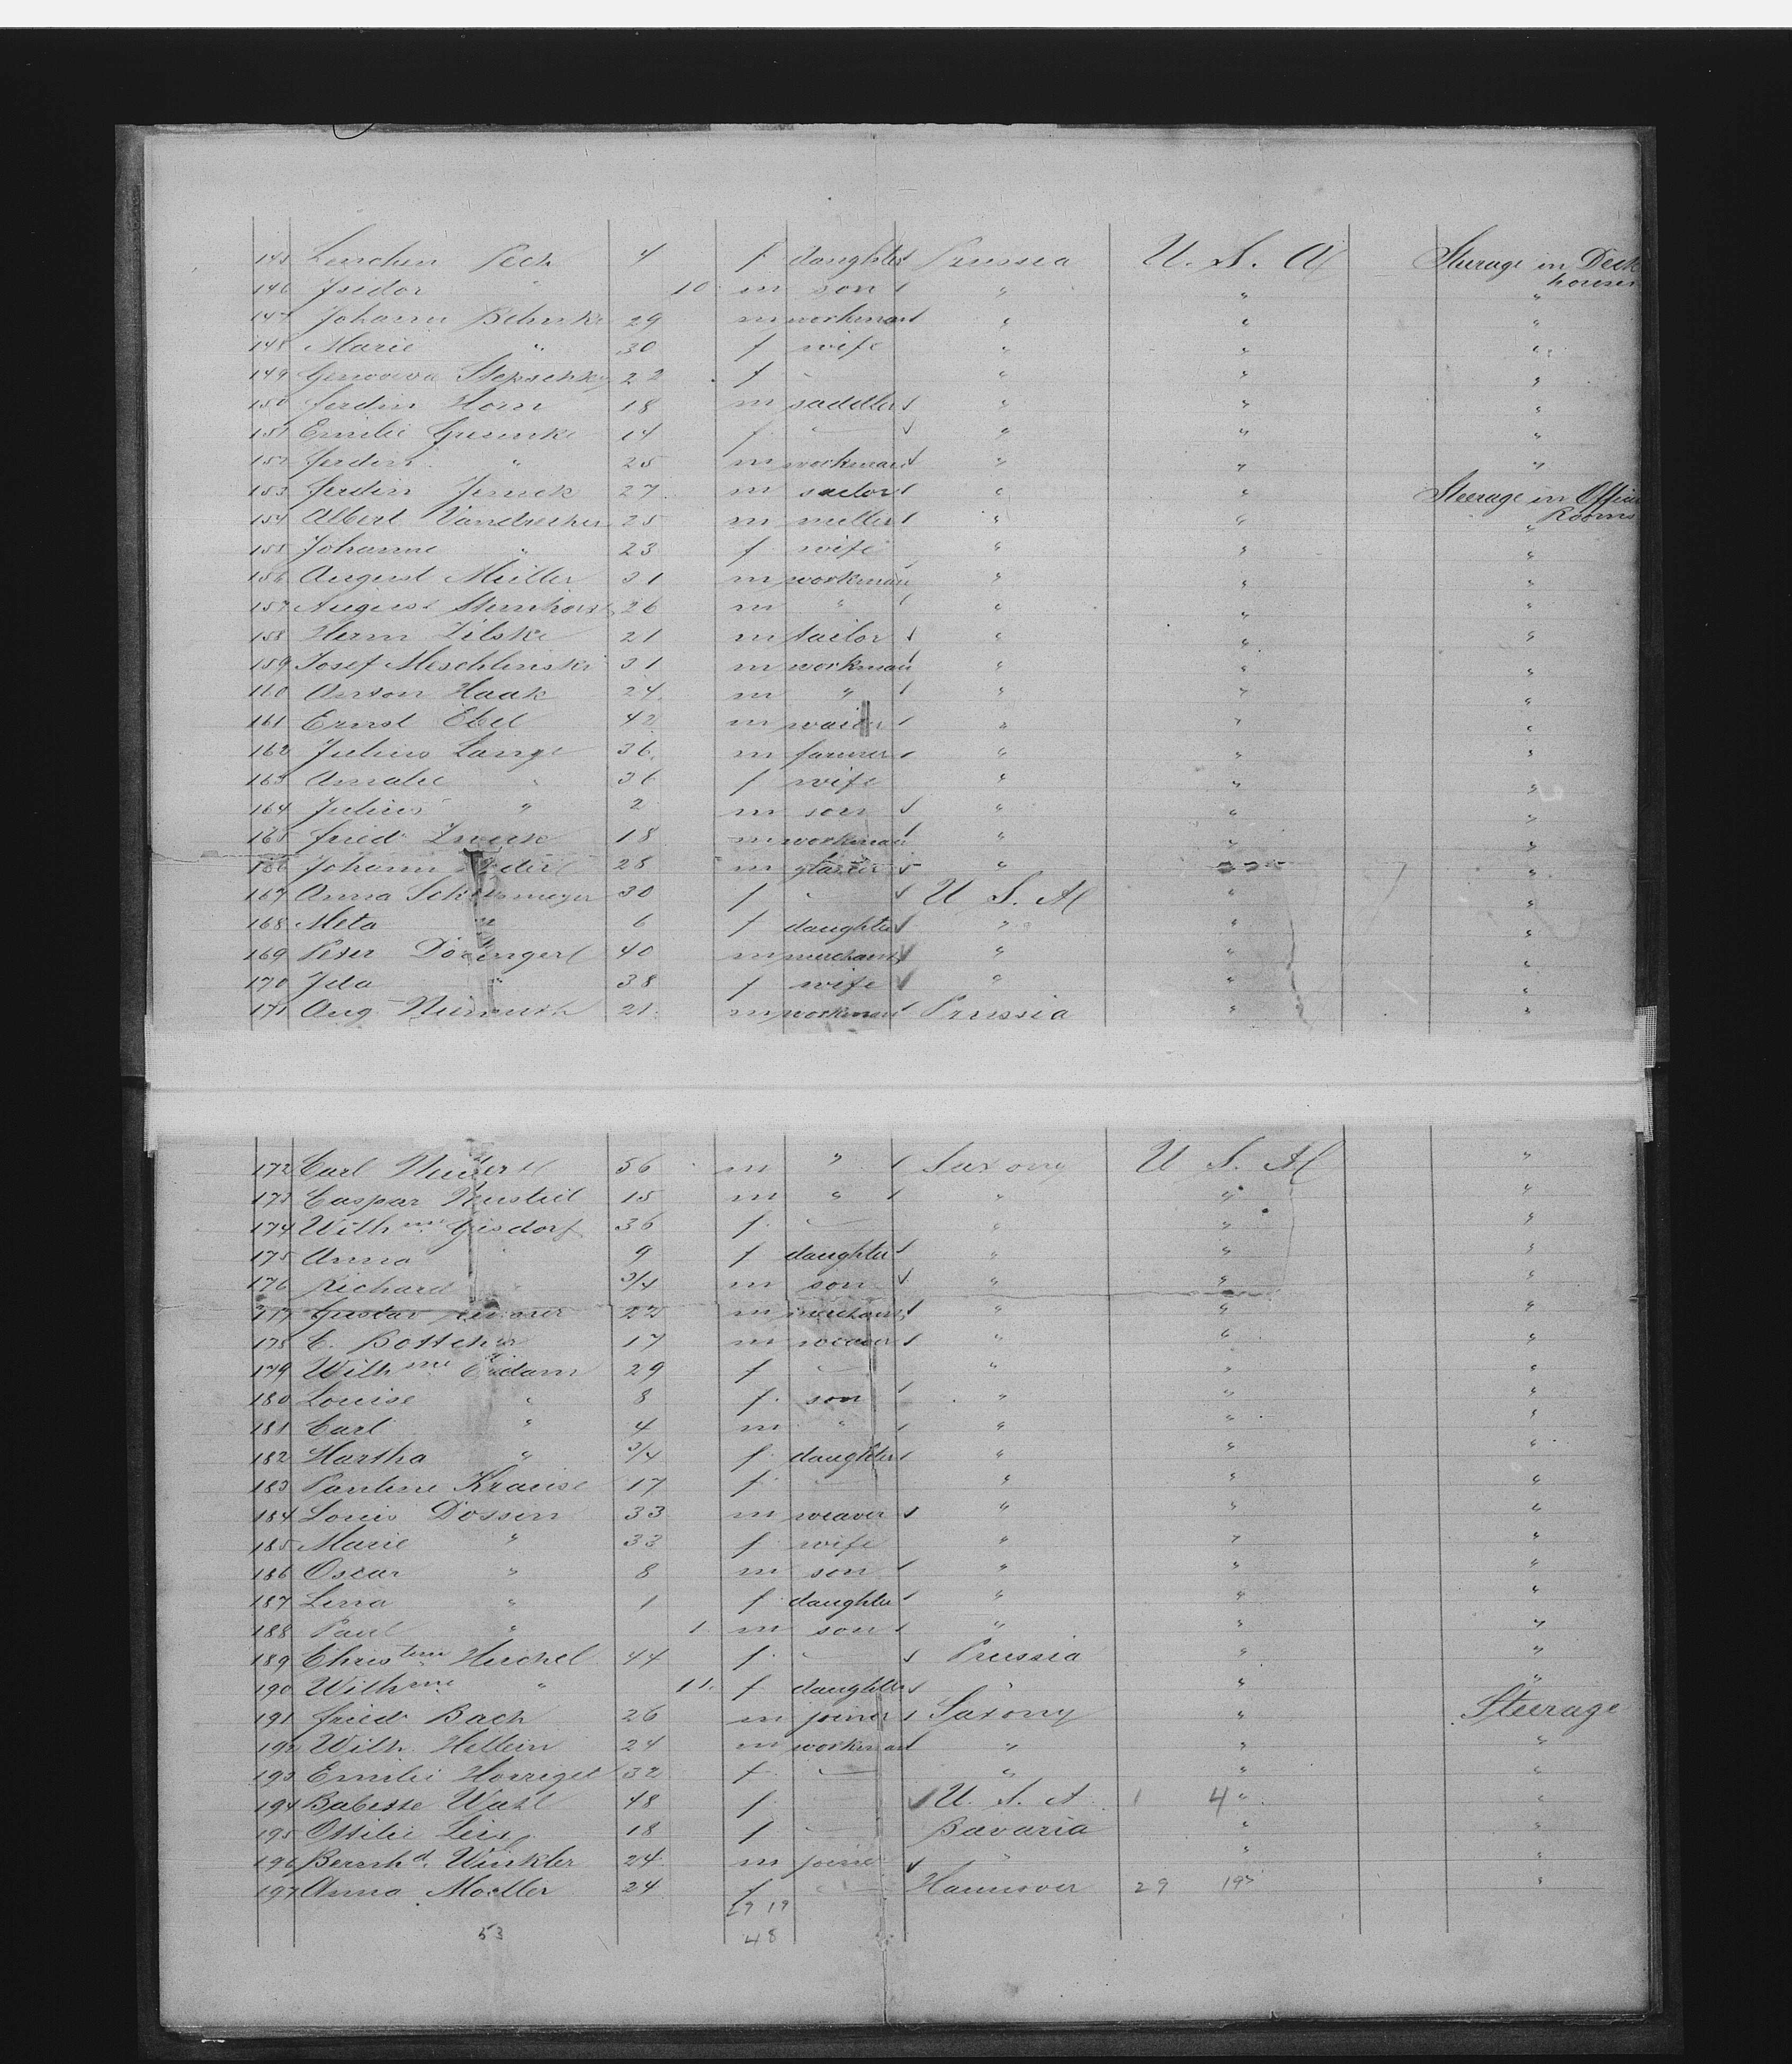 145 Lenchen Pech 4 f daughter Prussia U. S. A Steerage in Deck houses
146 Isidor " 10 m son " " "
147 Johann Behnke 29 m workman " " "
148 Marie " 30 f wife " " "
149 Stepschky 22 f - " " "
150 Ferdin Horn 18 m saddler " " "
151 Emilie Gusenke 14 f — " " "
152 Ferdin " 25 m workman " " "
153 Ferdin 27 m sailor " " Steerage in Office Rooms
154 Albert Vandrecher 25 m miller " " "
155 Johanne " 23 f wife " " "
156 August Müller 31 m workman " " "
157 August 26 m " " " "
158 Herm Zilske 21 m tailor " " "
159 Josef Meschlinski 31 m workman " " "
160 Anton Haak 24 m " " " "
161 Ernst Ebel 42 m " " "
162 Julius Lange 36 m farmer " " "
163 Amalie " 36 f wife " " "
164 Julius " 2 m son " " "
165 Fried 18 m workman " " "
166 Johann 28 m glazier " " "
167 Anna 30 f - U S. A " "
168 Meta " 6 f daughter " " "
169 Peter 40 m merchant " " "
170 Ida " 38 f wife " " "
171 Aug 21 m workman Prussia " "
172 Carl 56 m " Saxony U S. A "
173 Caspar 15 m " " " "
174 Wilhme Gisdorf 36 f — " " "
175 Anna " 9 f daughter " " "
176 Richard " 3/4 m son " " "
177 Gustav 22 m merchant " " "
178 C. Bottcher 17 m weaver " " "
179 Wilhme Eidam 29 f — " " "
180 Louise " 8 f son " " "
181 Carl " 4 m " " " "
182 Hartha " 3/4 f daughter " " "
183 Pauline Krause 17 f — " " "
184 Louis Dossin 33 m weaver " " "
185 Marie " 33 f wife " " "
186 Oscar " 8 m son " " "
187 Lina " 1 f daughter " " "
188 Paul " 1 m son " " "
189 Christine Heichel 44 f — Prussia " "
190 Wilhme " 11 f daughter " " "
191 Fried Bach 26 m joiner Saxony " Steerage
192 Wilh. Hellein 24 m workman " " "
193 Emilie 32 f — " " "
194 Babette Wahl 48 f — U. S. A. 1 4 " "
195 Ottilie 18 f — Bavaria " "
196 Bernhd. Winkler 24 m joiner " " "
197 Anna Moeller 24 f — Hannover 29 197 "
29 19
53 48